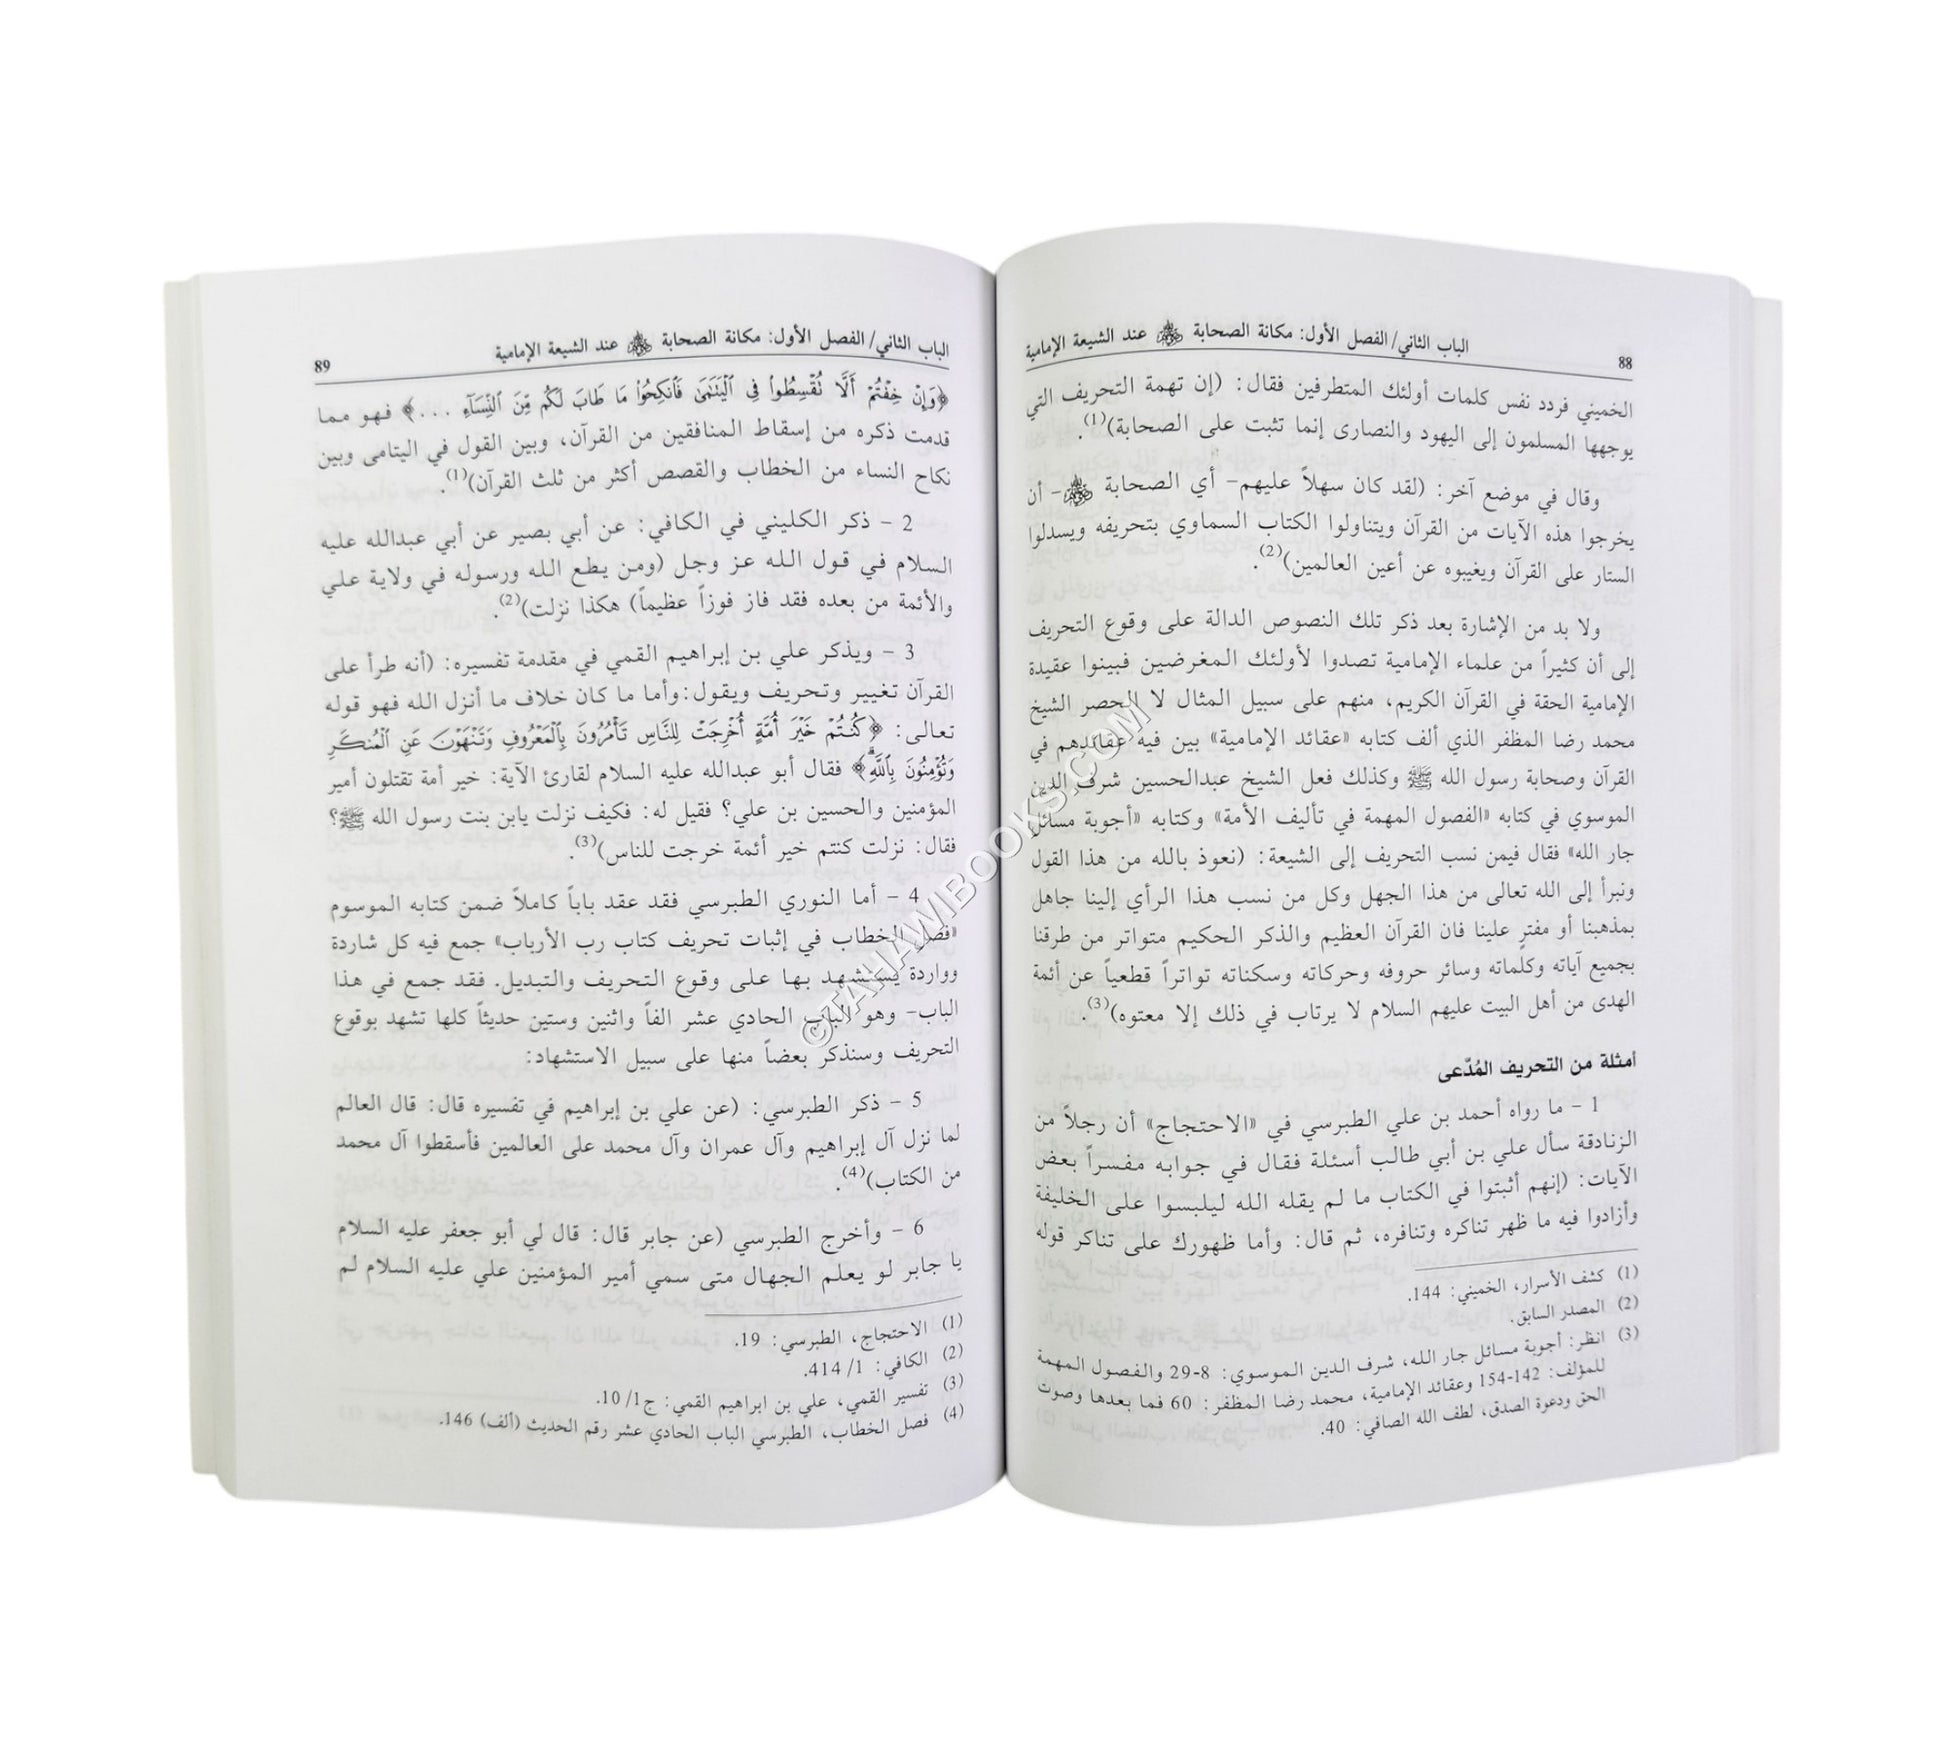 88
الباب الثاني/ الفصل الأول: مكانة الصحابة رضي الله عنهم عند الشيعة الإمامية
الخميني فردد نفس كلمات أولئك المتطرفين فقال: (إن تهمة التحريف التي
يوجهها المسلمون إلى اليهود والنصارى إنما تثبت على الصحابة)(1).
وقال في موضع آخر: (لقد كان سهلاً عليهم- أي الصحابة رضي الله عنهم- أن
يخرجوا هذه الآيات من القرآن ويتناولوا الكتاب السماوي بتحريفه ويسدلوا
الستار على القرآن ويغيبوه عن أعين العالمين)(2).
ولا بد من الإشارة بعد ذكر تلك النصوص الدالة على وقوع التحريف
إلى أن كثيراً من علماء الإمامية تصدوا لأولئك المغرضين فبينوا عقيدة
الإمامية الحقة في القرآن الكريم، منهم على سبيل المثال لا الحصر الشيخ
محمد رضا المظفر الذي ألف كتابه «عقائد الإمامية» بين فيه عقائدهم في
القرآن وصحابة رسول الله ﷺ وكذلك فعل الشيخ عبدالحسين شرف الدين
الموسوي في كتابه «الفصول المهمة في تأليف الأمة» وكتابه «أجوبة مسائل
جار الله» فقال فيمن نسب التحريف إلى الشيعة: (نعوذ بالله من هذا القول
ونبرأ إلى الله تعالى من هذا الجهل وكل من نسب هذا الرأي إلينا جاهل
بمذهبنا أو مفترٍ علينا فان القرآن العظيم والذكر الحكيم متواتر من طرقنا
بجميع آياته وكلماته وسائر حروفه وحركاته وسكناته تواتراً قطعياً عن أئمة
الهدى من أهل البيت عليهم السلام لا يرتاب في ذلك إلا معتوه)(3).
أمثلة من التحريف المُدّعى
1 - ما رواه أحمد بن علي الطبرسي في «الاحتجاج» أن رجلاً من
الزنادقة سأل علي بن أبي طالب أسئلة فقال في جوابه مفسراً بعض
الآيات: (إنهم أثبتوا في الكتاب ما لم يقله الله ليلبسوا على الخليفة
وأزادوا فيه ما ظهر تناكره وتنافره، ثم قال: وأما ظهورك على تناكر قوله
(1) كشف الأسرار، الخميني: 144.
(2) المصدر السابق.
(3) انظر: أجوبة مسائل جار الله، شرف الدين الموسوي: 8-29 والفصول المهمة
للمؤلف: 142-154 وعقائد الإمامية، محمد رضا المظفر: 60 فما بعدها وصوت
الحق ودعوة الصدق، لطف الله الصافي: 40.
الباب الثاني/ الفصل الأول: مكانة الصحابة رضي الله عنهم عند الشيعة الإمامية
89
﴿وَإِنْ خِفْتُمْ أَلَّا تُقْسِطُوا فِي الْيَتَامَىٰ فَانكِحُوا مَا طَابَ لَكُم مِّنَ النِّسَاءِ ...﴾ فهو مما
قدمت ذكره من إسقاط المنافقين من القرآن، وبين القول في اليتامى وبين
نكاح النساء من الخطاب والقصص أكثر من ثلث القرآن)(1).
2 - ذكر الكليني في الكافي: عن أبي بصير عن أبي عبدالله عليه
السلام في قول الله عز وجل (ومن يطع الله ورسوله في ولاية علي
والأئمة من بعده فقد فاز فوزاً عظيماً) هكذا نزلت)(2).
3 - ويذكر علي بن إبراهيم القمي في مقدمة تفسيره: (أنه طرأ على
القرآن تغيير وتحريف ويقول: وأما ما كان خلاف ما أنزل الله فهو قوله
تعالى: ﴿كُنتُمْ خَيْرَ أُمَّةٍ أُخْرِجَتْ لِلنَّاسِ تَأْمُرُونَ بِالْمَعْرُوفِ وَتَنْهَوْنَ عَنِ الْمُنكَرِ
وَتُؤْمِنُونَ بِاللَّهِ﴾ فقال أبو عبدالله عليه السلام لقارئ الآية: خير أمة تقتلون أمير
المؤمنين والحسين بن علي؟ فقيل له: فكيف نزلت يابن بنت رسول الله ﷺ؟
فقال: نزلت كنتم خير أئمة خرجت للناس)(3).
4 - أما النوري الطبرسي فقد عقد باباً كاملاً ضمن كتابه الموسوم
«فصل الخطاب في إثبات تحريف كتاب رب الأرباب» جمع فيه كل شاردة
وواردة يستشهد بها على وقوع التحريف والتبديل. فقد جمع في هذا
الباب- وهو الباب الحادي عشر الفاً واثنين وستين حديثاً كلها تشهد بوقوع
التحريف وسنذكر بعضاً منها على سبيل الاستشهاد:
5 - ذكر الطبرسي: (عن علي بن إبراهيم في تفسيره قال: قال العالم
لما نزل آل إبراهيم وآل عمران وآل محمد على العالمين فأسقطوا آل محمد
من الكتاب)(4).
6 - وأخرج الطبرسي (عن جابر قال: قال لي أبو جعفر عليه السلام
يا جابر لو يعلم الجهال متى سمي أمير المؤمنين علي عليه السلام لم
(1) الاحتجاج، الطبرسي: 19.
(2) الكافي: 1/ 414.
(3) تفسير القمي، علي بن ابراهيم القمي: ج1/ 10.
(4) فصل الخطاب، الطبرسي الباب الحادي عشر رقم الحديث (ألف) 146.
©TAHAWIBOOKS.COM